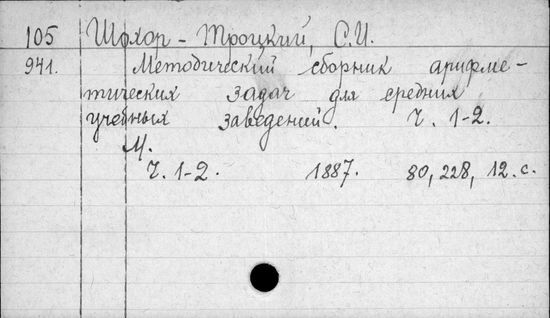 105 Шохор-Троцкий, С.И.
941. Методический сборник арифме-
тических задач для средних
учебных заведений. Ч. 1-2.
М.
Ч. 1-2. 1887. 80, 228, 12. с.